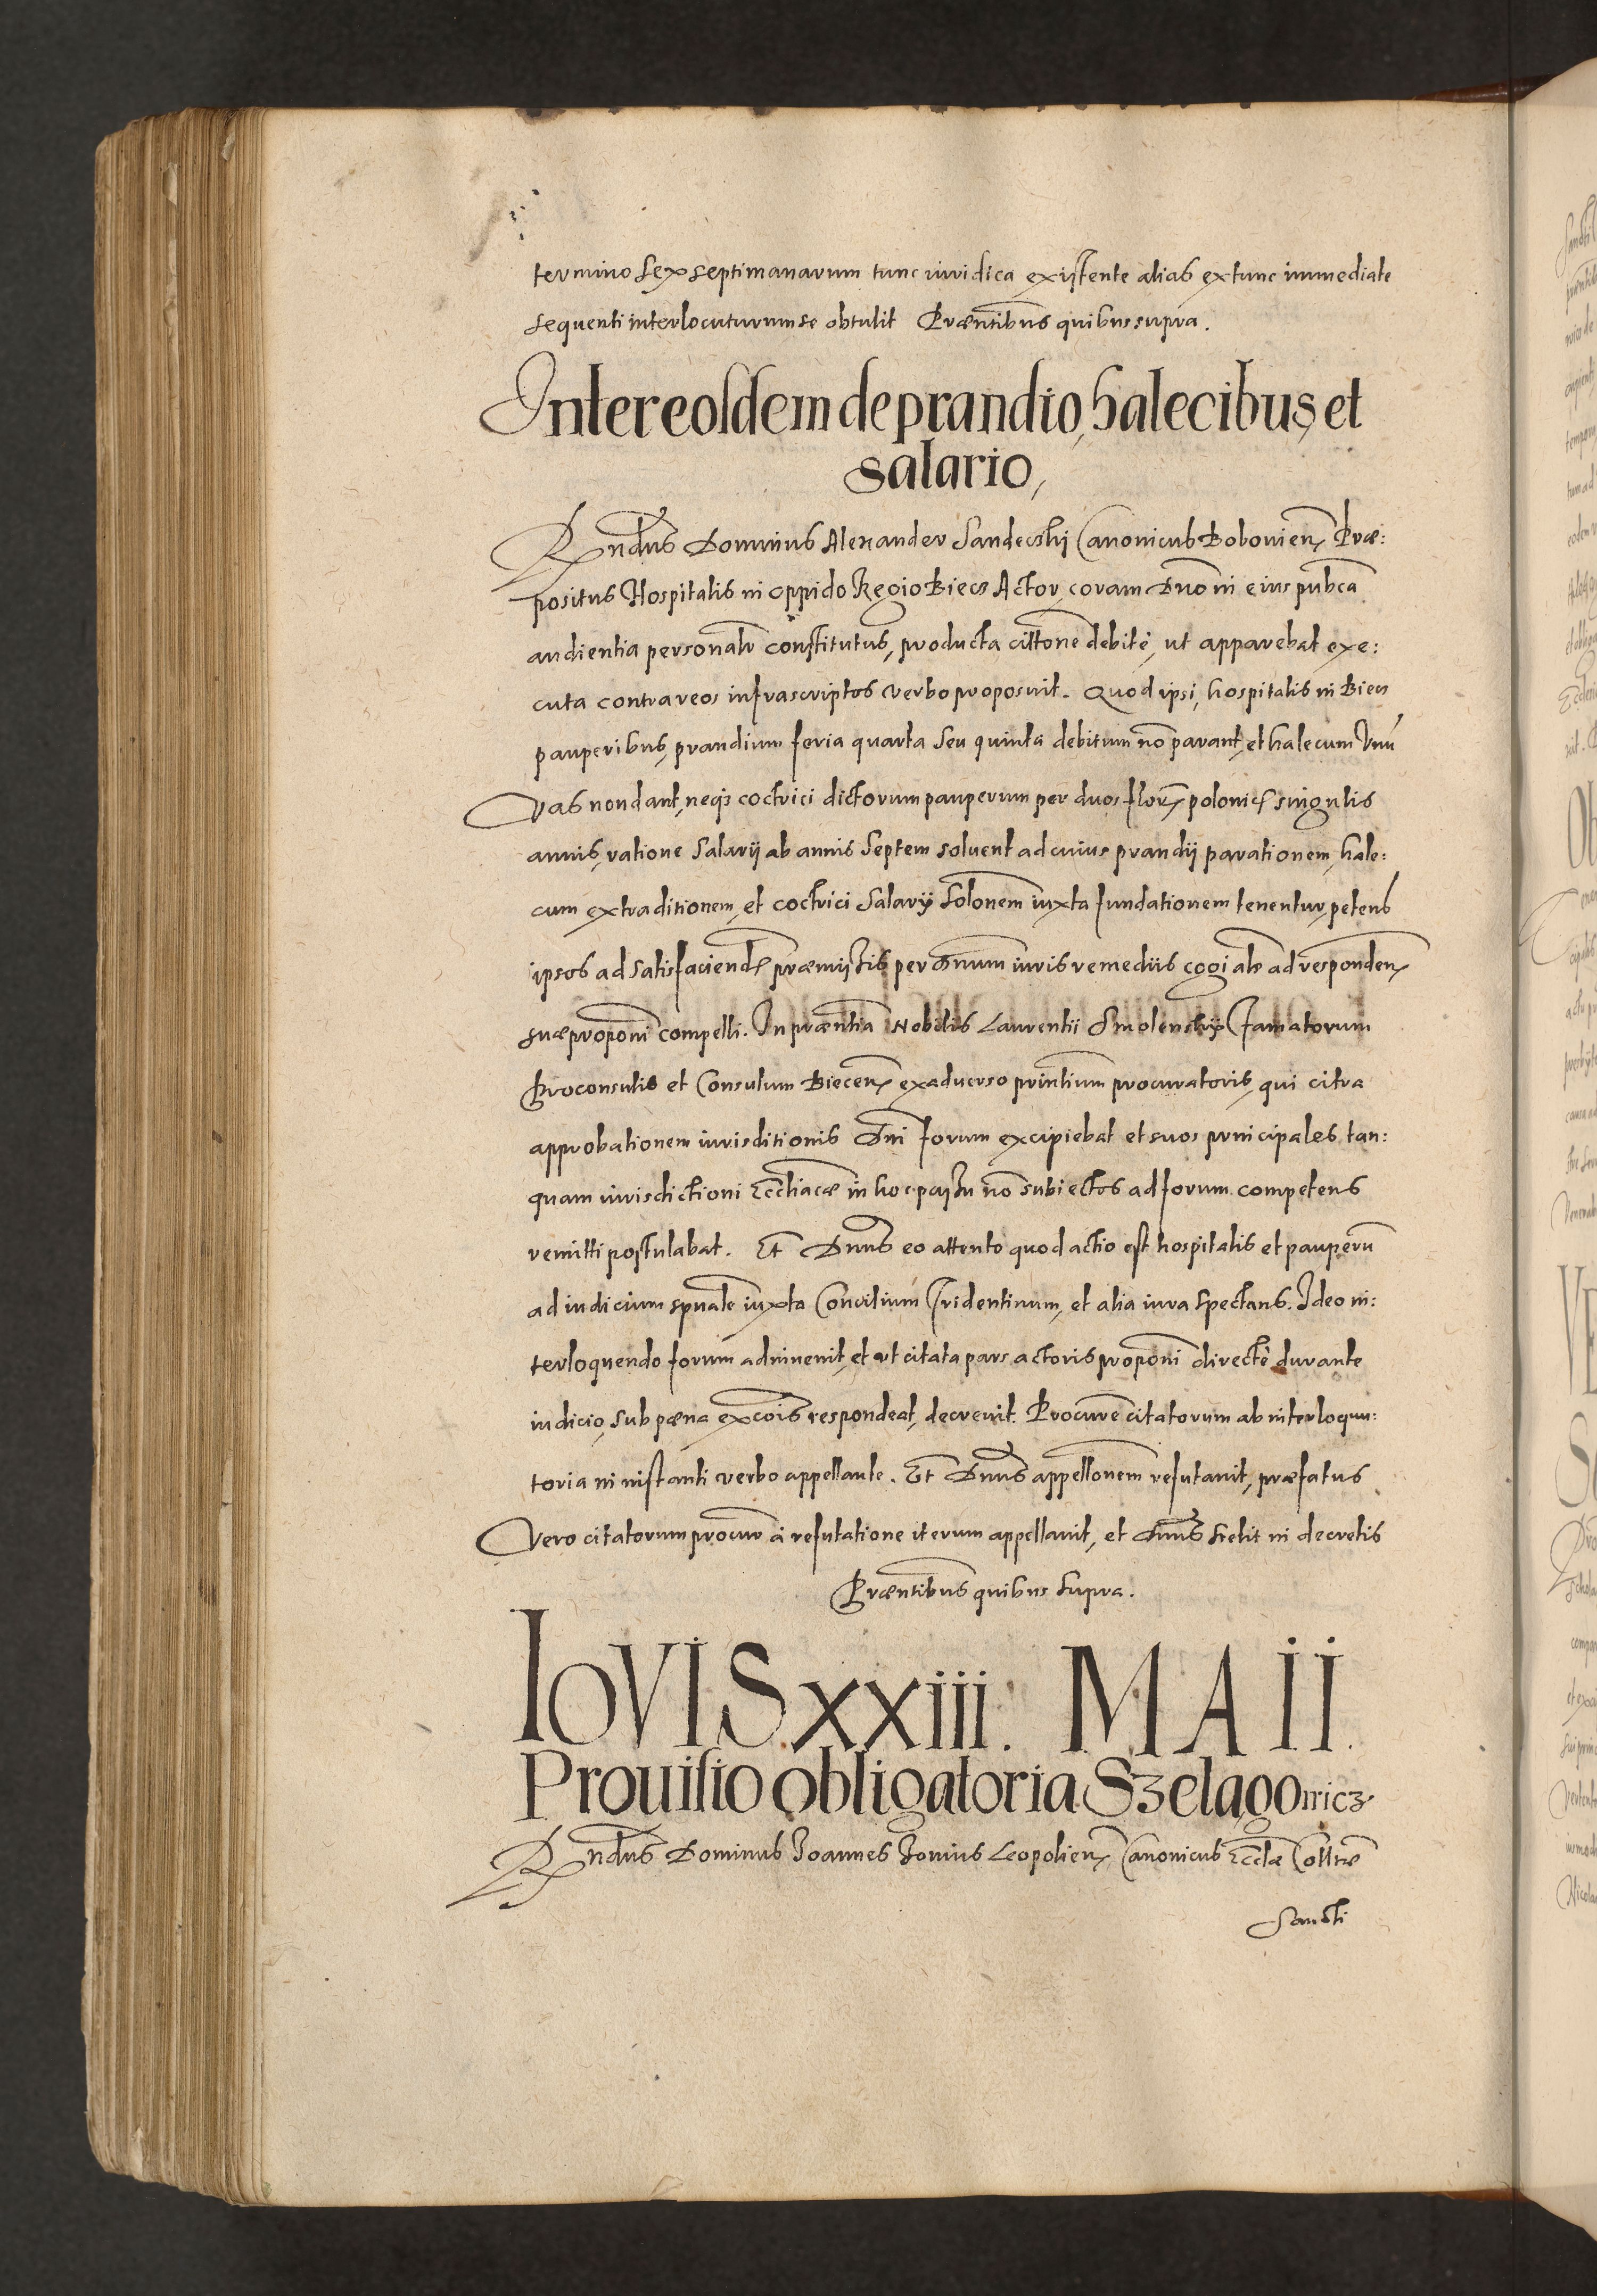 termino sex septimanarum tunc iuridica existente alias extunc immediate
sequenti interlocuturum se obtulit Præntibus quibus supra.
Inter eosdem de prandio, halecibus, et
salario,
Rndus Dominus Alexander Sandecskj Canonicus Bobouien, Præ:
positus Hospitalis in oppido Regio Biecz Actor, coram Dno in eius pubca
audientia personalr constitutus, producta cittone debite, ut apparebat exe:
cuta contra reos infrascriptos verbo proposuit. Quod ipsi, hospitalis in Biecz
pauperibus, prandium feria quarta seu quinta debitum no parant, et halecum Vnu
Vas non dant, neq; coctrici dictorum pauperum per duos floren polonic singulis
annis, ratione salarij ab annis septem soluent ad cuius prandij parationem, hale:
cum extraditionem, et coctrici salarij solonem iuxta fundationem tenentur, petens
ipsos ad satisfaciend præmissis per Dnum iuris remediis cogi ale ad responden,
suæ proponi compelli. In præntia Nobilis Laurentii Smolenskij Famatorum
Proconsulis et Consulum Biecen, ex aduerso printium procuratoris, qui citra
approbationem iurisditionis Dni forum excipiebat et suos principales, tan:
quam iurisdictioni Ecclîacæ in hoc passu no subiectos ad forum competens
remitti postulabat. Et Dnus eo attento quod actio est hospitalis et pauperu
ad iudicium spuale iuxta Concilium Tridentinum, et alia iura spectans. Ideo in:
terloquendo forum adinuenit, et ut citata pars actoris proponi directe durante
iudicio, sub pæna excois respondeat, decreuit. Procure citatorum ab interloqu:
toria in instanti verbo appellante. Et Dnus appellonem refutauit, præfatus
Vero citatorum procur à refutatione iterum appellauit, et Dnus stetit in decretis
Præntibus quibus supra.
IOVIS xxiii. MAII.
Prouisio obligatoria Szelagowicz
Rndus Dominus Ioannes Iouius Leopolien, Canonicus Eccliæ Colltæ
Sancti